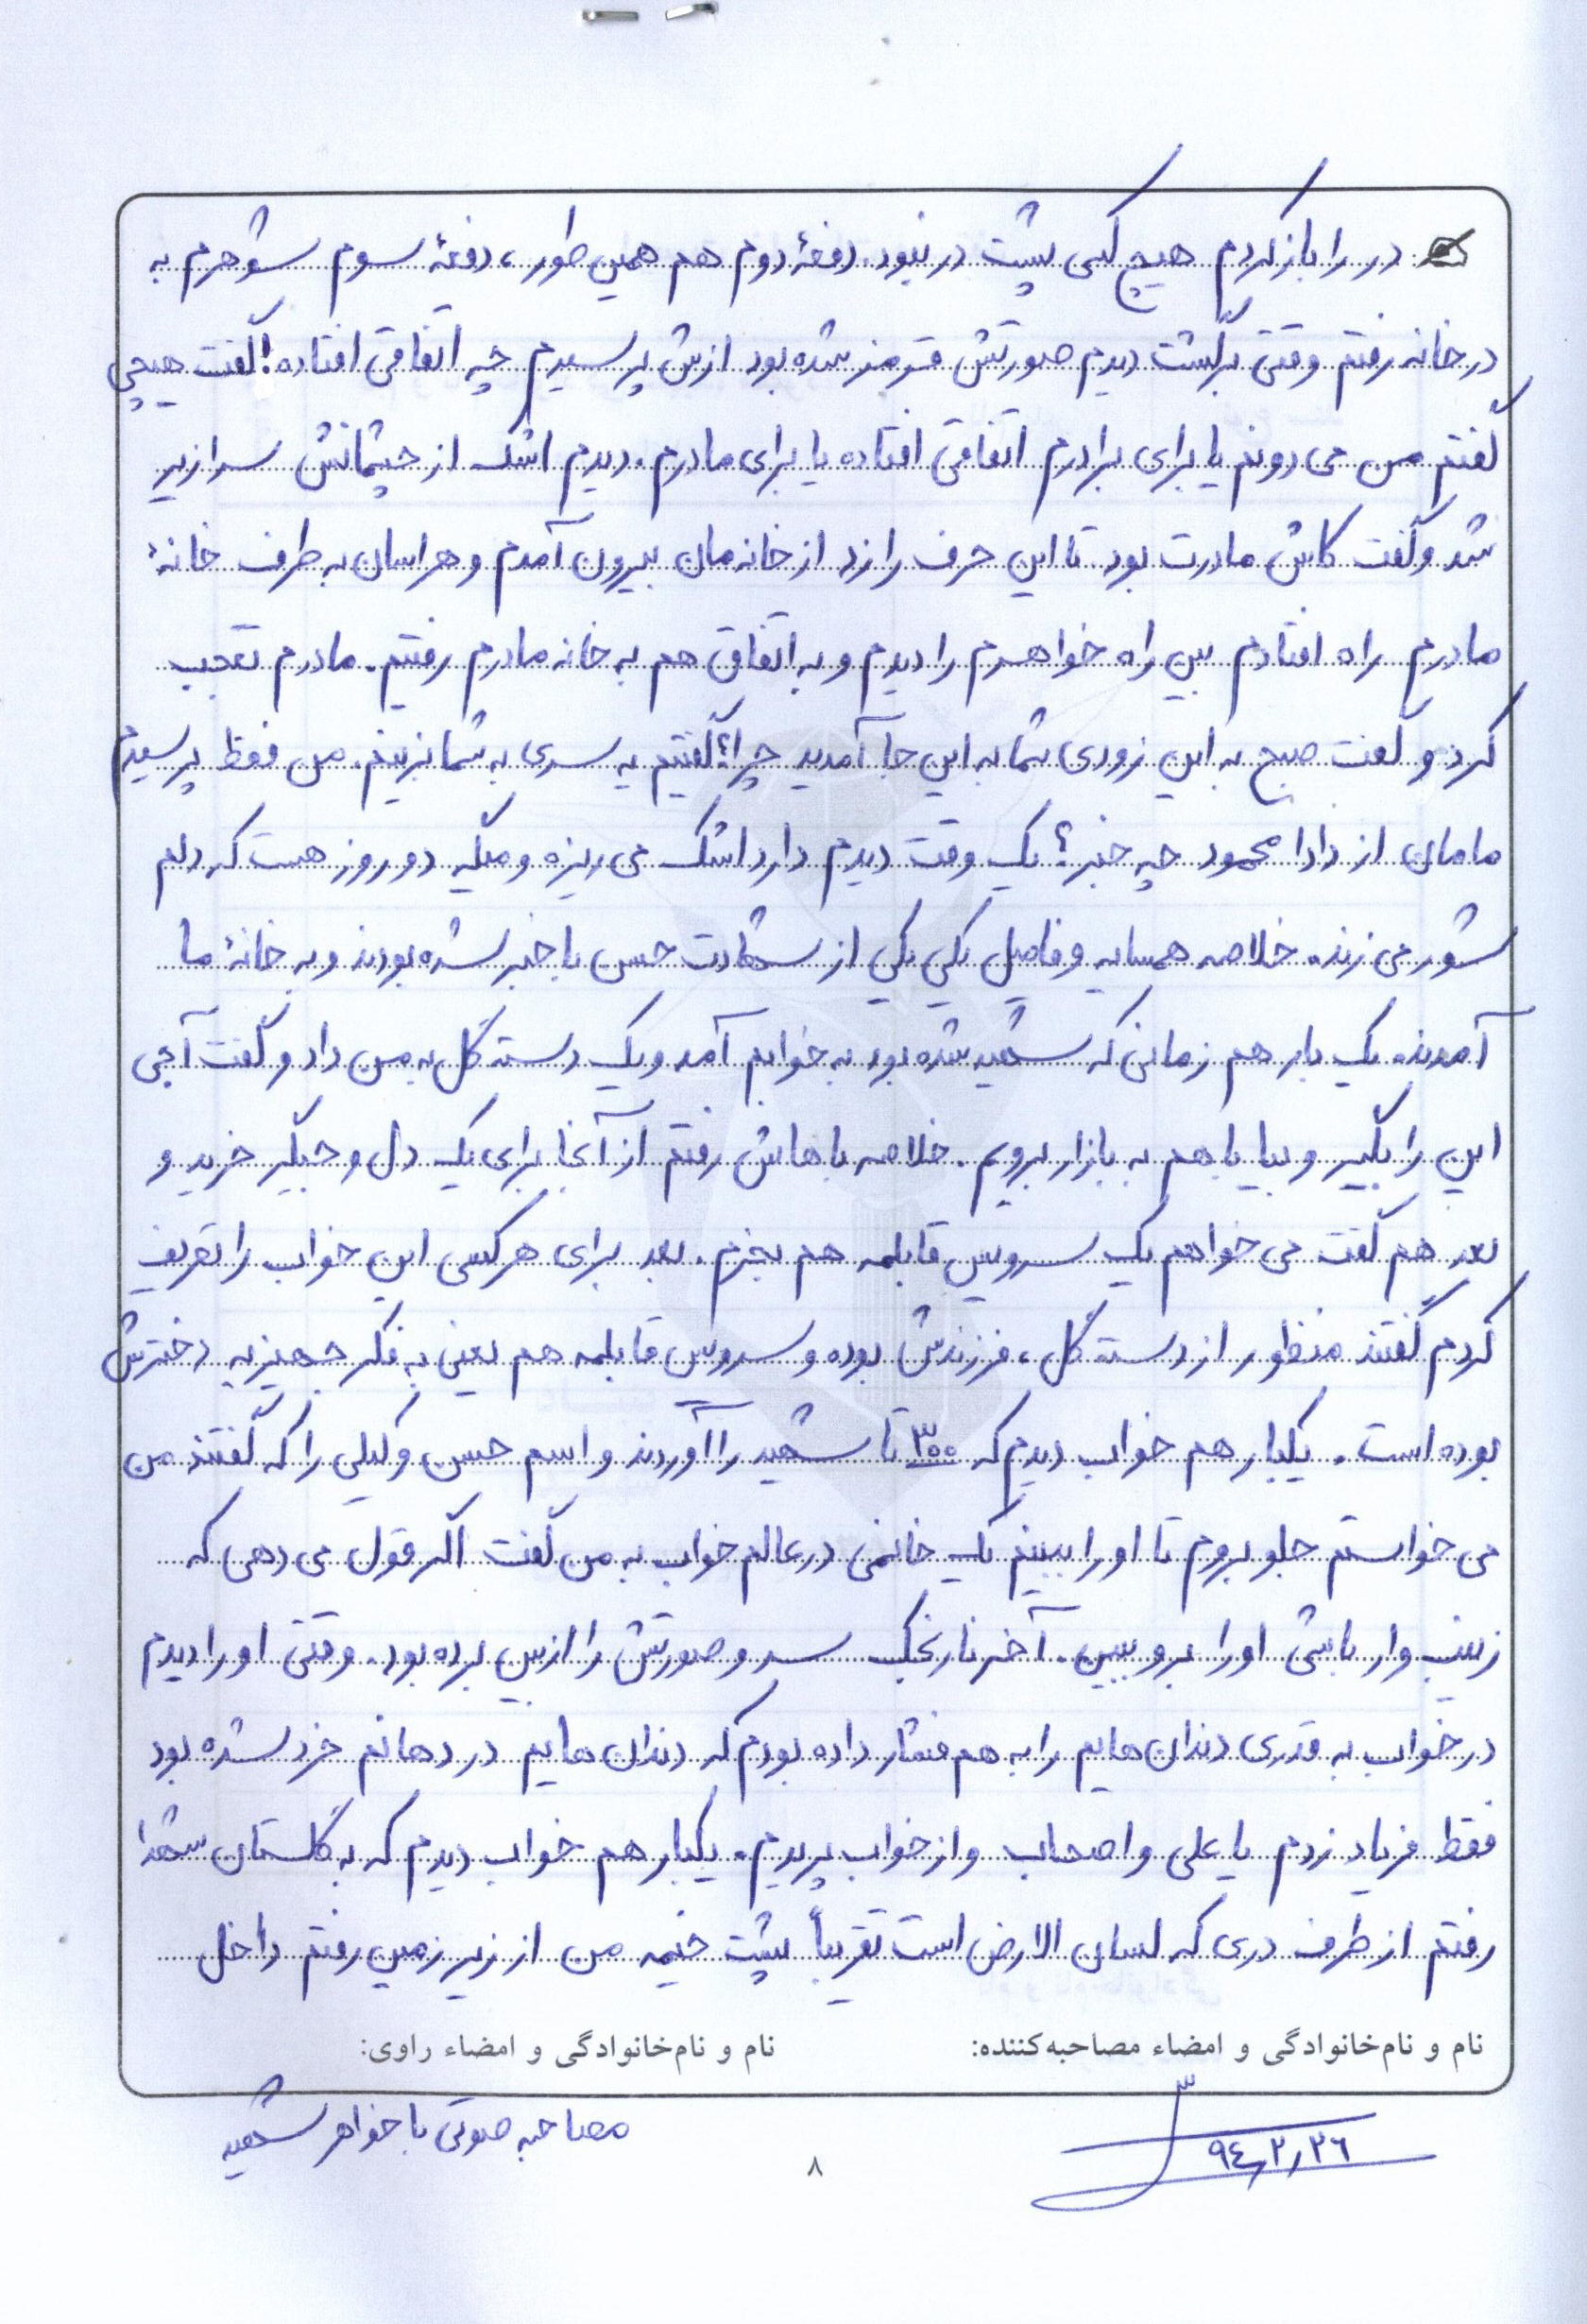 در را باز کردم هیچ کسی پشت در نبود. دفعهٔ دوم هم همین طور، دفعهٔ سوم شوهرم به
در خانه رفتم وقتی برگشت دیدم صورتش قرمز شده بود ازش پرسیدم چه اتفاقی افتاده! گفت هیچی
گفتم من می دونم یا برای برادرم اتفاقی افتاده یا برای مادرم. دیدم اشک از چشمانش سرازیر
شد و گفت کاش مادرت بود. تا این حرف را زد از خانه مان بیرون آمدم و هراسان به طرف خانهٔ
مادرم راه افتادم بین راه خواهرم را دیدم و به اتفاق هم به خانه مادرم رفتیم. مادرم تعجب
کرد و گفت صبح به این زودی شما به این جا آمدید چرا؟ گفتیم یه سری به شما بزنیم. من فقط پرسیدم
مامان از دادا محمود چه خبر؟ یک وقت دیدم دارد اشک می ریزه و میگه دو روز هست که دلم
شور می زند. خلاصه همسایه و فامیل یکی یکی از شهادت حسن با خبر شده بودند و به خانهٔ ما
آمدند. یک بار هم زمانی که شهید شده بود به خوابم آمد و یک دسته گل به من داد و گفت آجی
این را بگیر و بیا با هم به بازار برویم. خلاصه باهاش رفتم از آنجا برای یک دل و جیگر خرید و
بعد هم گفت می خواهم یک سرویس قابلمه هم بخرم. بعد برای هر کسی این خواب را تعریف
کردم گفتند منظور از دسته گل، فرزندش بوده و سرویس قابلمه هم یعنی به فکر جهیزیه دخترش
بوده است. یکبار هم خواب دیدم که ۳۰۰ تا شهید را آوردند و اسم حسن وکیلی را که گفتند من
می خواستم جلو بروم تا او را ببینم یک خانمی در عالم خواب به من گفت اگر قول می دهی که
زینب وار باشی او را برو ببین. آخر نارنجک سر و صورتش را از بین برده بود. وقتی او را دیدم
در خواب به قدری دندان هایم را به هم فشار داده بودم که دندان هایم در دهانم خرد شده بود
فقط فریاد زدم یا علی و اصحاب و از خواب پریدم. یکبار هم خواب دیدم که به گلستان شهدا
رفتم از طرف دری که لسان الارض است تقریباً پشت خیمه من از زیر زمین رفتم داخل
نام و نام‌خانوادگی و امضاء مصاحبه‌کننده: نام و نام‌خانوادگی و امضاء راوی:
۹۴/۲/۲۶ مصاحبه صوتی با خواهر شهید
۸